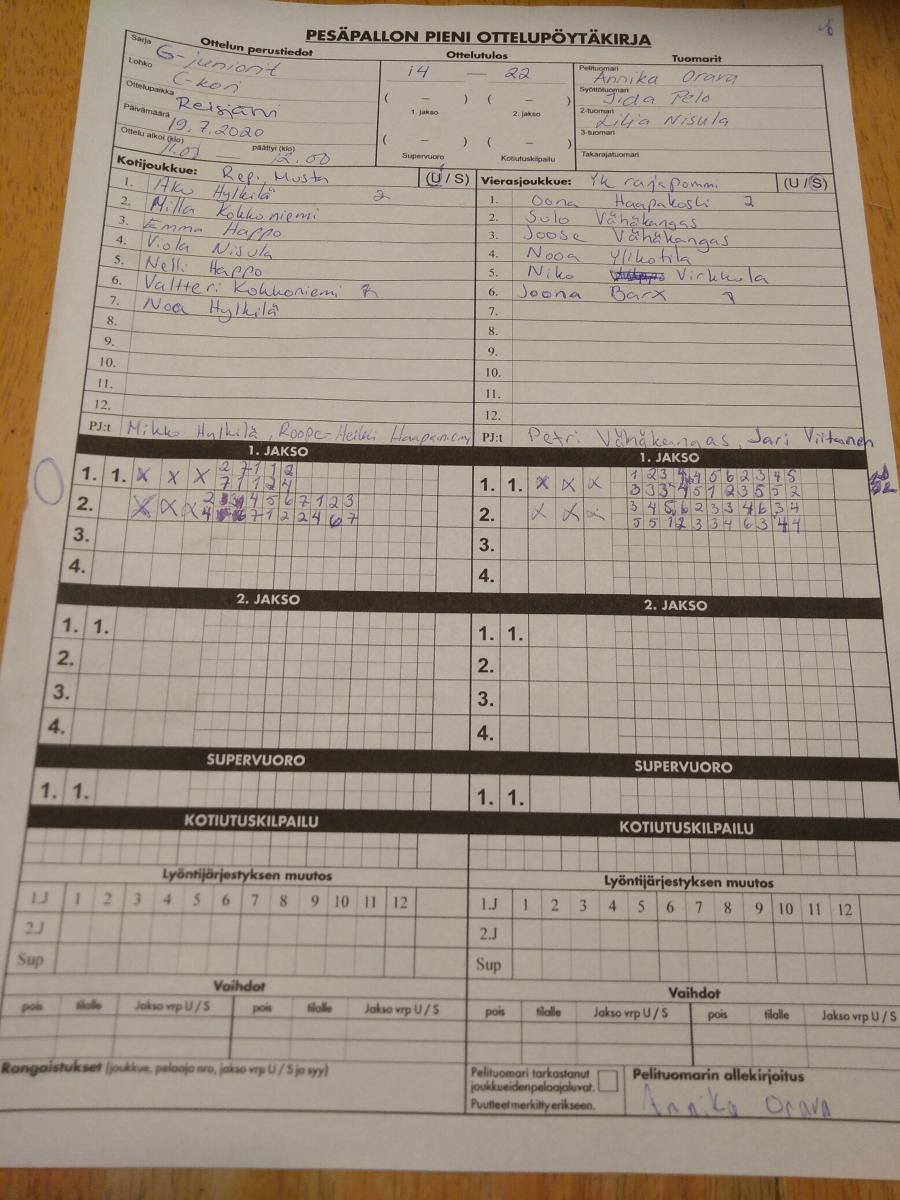 PESÄPALLON PIENI OTTELUPÖYTÄKIRJA
Sarja Ottelun perustiedot
G-juniorit
Lohko C-kori
Ottelupaikka Reisjärvi
Päivämäärä 19.7.2020
Ottelu alkoi (klo) 11.01 — päättyi (klo) 12.00
Ottelutulos
14 — 22
( – ) ( – )
1. jakso 2. jakso
( – ) ( – )
Supervuoro Kotiutuskilpailu
Tuomarit
Pelituomari Annika Orava
Syöttötuomari Iida Pelo
2-tuomari Lilja Nisula
3-tuomari
Takarajatuomari
Kotijoukkue: Repi, Musta (U / S)
1. Aku Hylkilä 2
2. Milla Kokkoniemi
3. Emma Happo
4. Viola Nisula
5. Nelli Happo
6. Valtteri Kokkoniemi
7. Noa Hylkilä
8.
9.
10.
11.
12.
PJ:t Mikko Hylkilä, Roope-Heikki Haapaniemi
Vierasjoukkue: Yk rajapommi (U / S)
1. Oona Haapakoski 2
2. Sulo Vähäkangas
3. Joose Vähäkangas
4. Nooa Ylikotila
5. Niko Virkkula
6. Joona Barx
7.
8.
9.
10.
11.
12.
PJ:t Petri Vähäkangas, Jari Viitanen
1. JAKSO
1. 1. x x x 2 7 1 1 2
7 1 1 2 4
2. x x x 2 4 5 6 7 1 2 3
4 7 1 2 2 4 6 7
3.
4.
1. JAKSO
1. 1. x x x 1 2 3 4 5 6 2 3 4 5
3 3 3 4 5 1 2 3 5 5 2
2. x x x 3 4 5 6 2 3 3 4 6 3 4
5 5 1 2 3 3 4 6 3 4 4
3.
4.
2. JAKSO
1. 1.
2.
3.
4.
2. JAKSO
1. 1.
2.
3.
4.
SUPERVUORO
1. 1.
SUPERVUORO
1. 1.
KOTIUTUSKILPAILU
KOTIUTUSKILPAILU
Lyöntijärjestyksen muutos
1.J 1 2 3 4 5 6 7 8 9 10 11 12
2.J
Sup
Lyöntijärjestyksen muutos
1.J 1 2 3 4 5 6 7 8 9 10 11 12
2.J
Sup
Vaihdot
pois tilalle Jakso vrp U / S pois tilalle Jakso vrp U / S
Vaihdot
pois tilalle Jakso vrp U / S pois tilalle Jakso vrp U / S
Rangaistukset (joukkue, pelaaja nro, jakso vrp U / S ja syy)
Pelituomari tarkastanut
joukkueidenpelaajaluvat.
Puutteet merkitty erikseen.
Pelituomarin allekirjoitus
Annika Orava